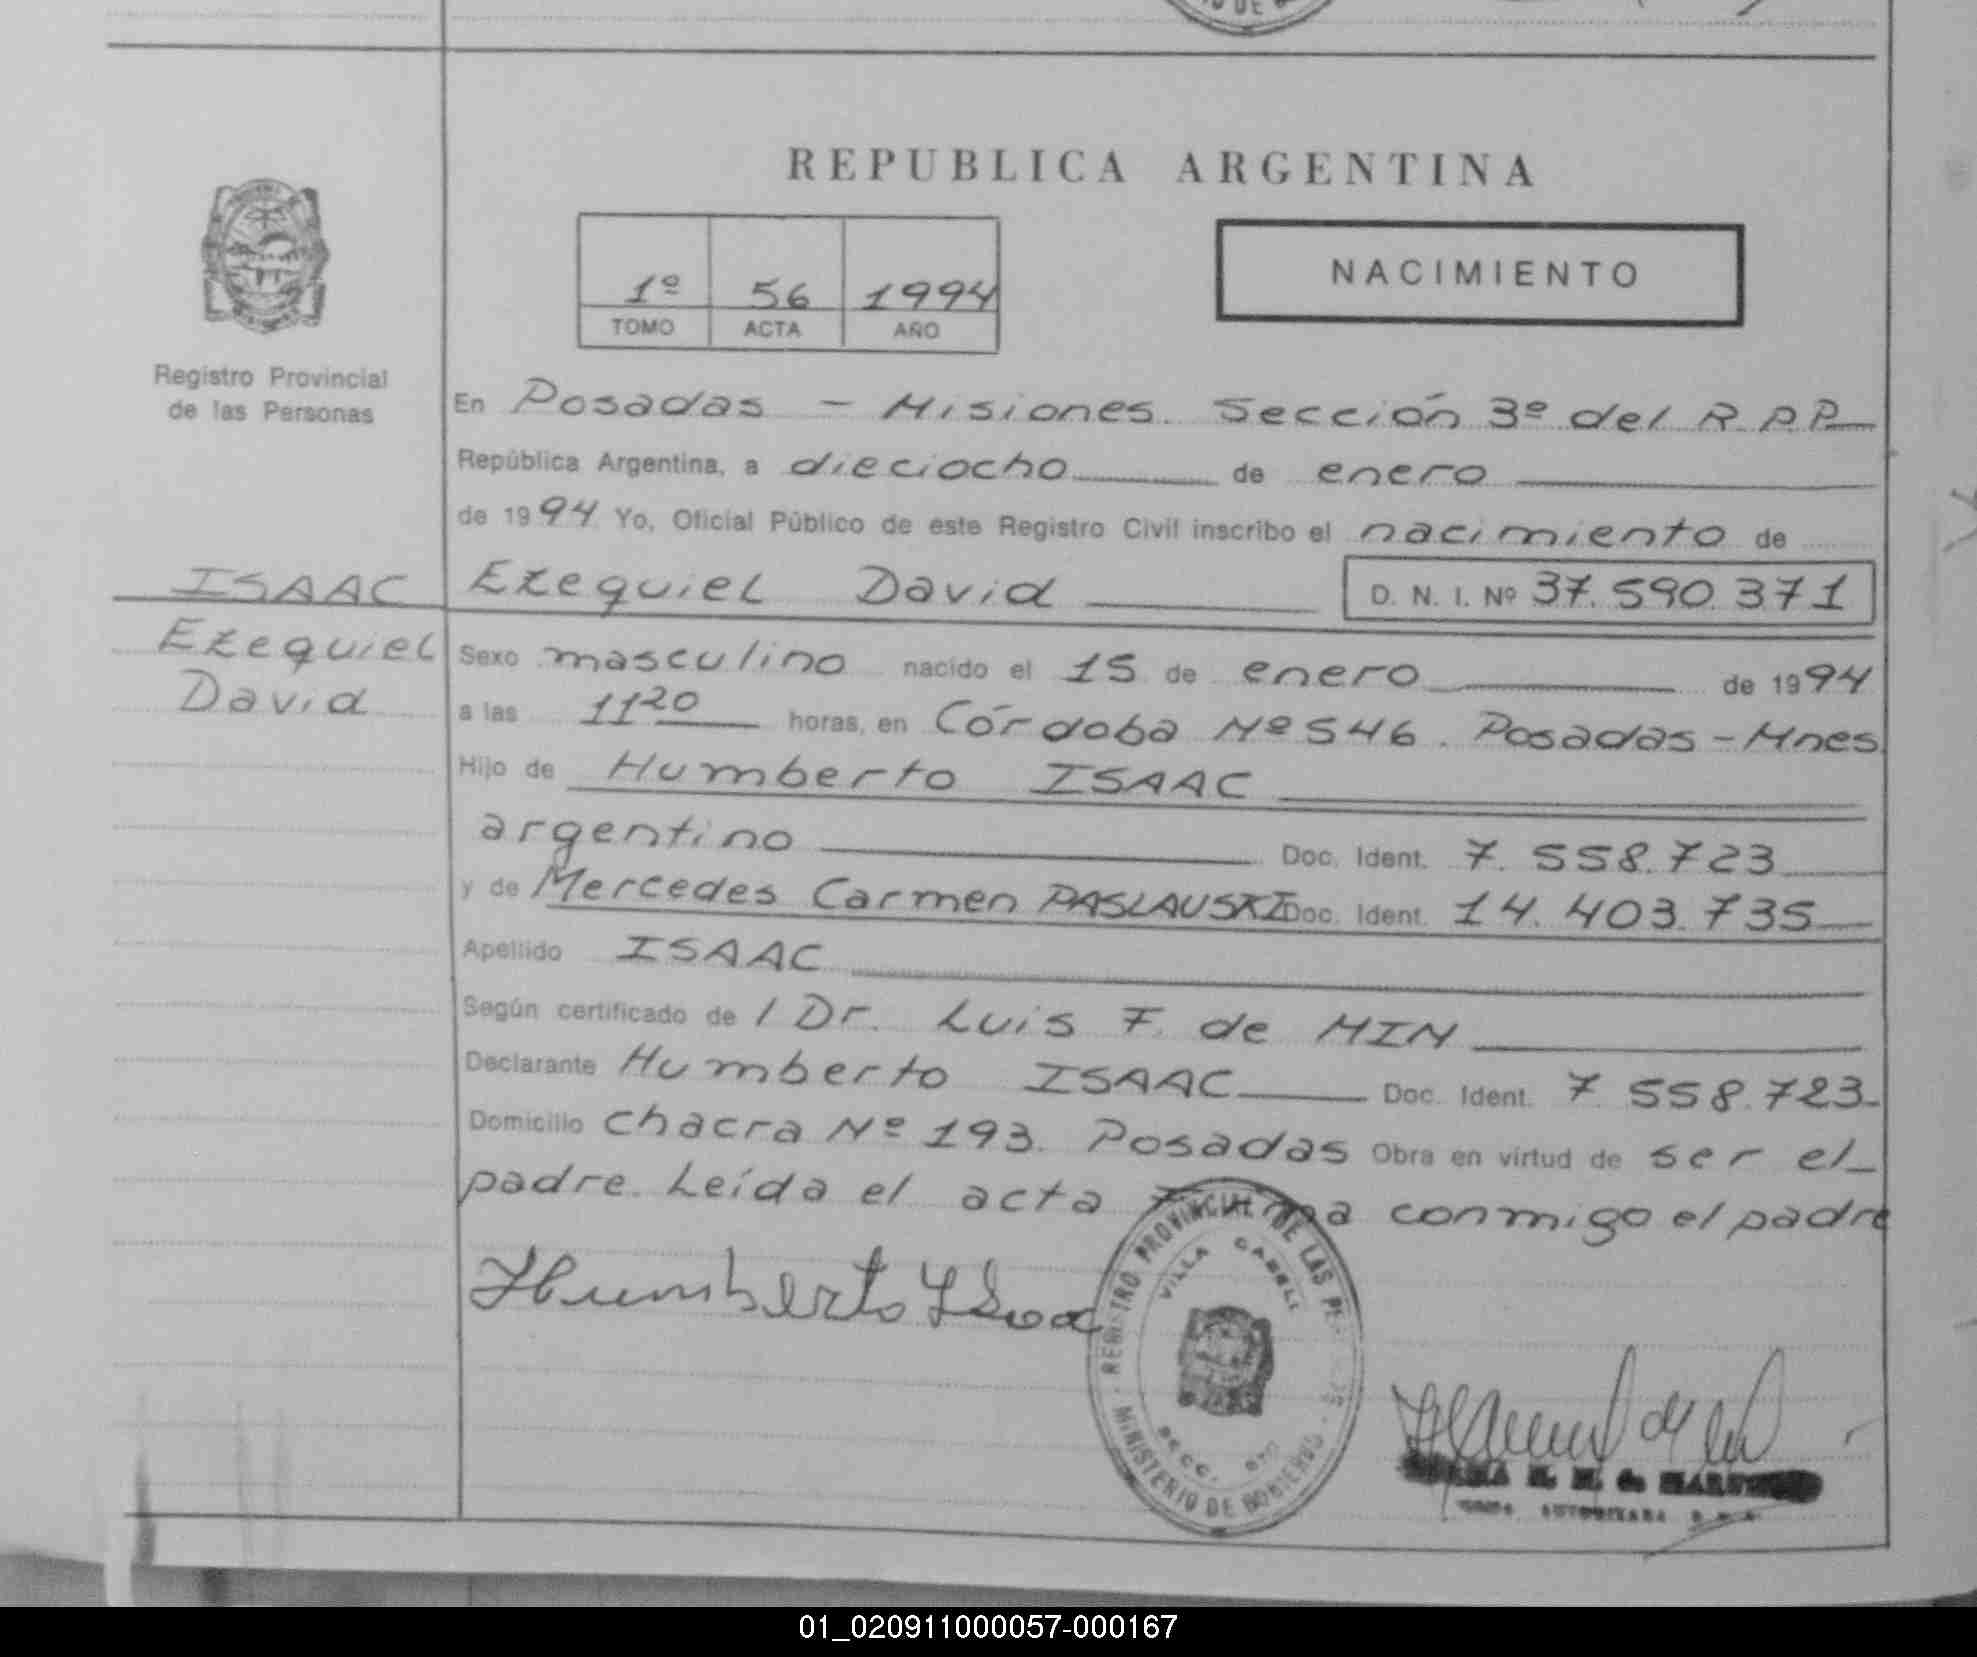 REPUBLICA ARGENTINA
1º 56 1994
TOMO ACTA AÑO
NACIMIENTO
Registro Provincial
de las Personas
En Posadas - Misiones. Sección 3º del R.P.P.
República Argentina, a dieciocho de enero
de 1994 Yo, Oficial Público de este Registro Civil inscribo el nacimiento de
ISAAC
Ezequiel
David
Ezequiel David D. N. I. Nº 37.590.371
Sexo masculino nacido el 15 de enero de 1994
a las 11 20 horas, en Córdoba Nº 546. Posadas - Mnes
Hijo de Humberto ISAAC
argentino Doc. Ident. 7.558.723
y de Mercedes Carmen PASLAUSKI Doc. Ident. 14.403.735
Apellido ISAAC
Según certificado de l Dr. Luis F. de MIN
Declarante Humberto ISAAC Doc. Ident. 7.558.723
Domicilio chacra Nº 193. Posadas Obra en virtud de ser el
padre. Leída el acta firma conmigo el padre
Humberto Isaac
REGISTRO PROVINCIAL DE LAS
VILLA CABELL
SECC.
MINISTERIO DE GOBIERNO
01_020911000057-000167